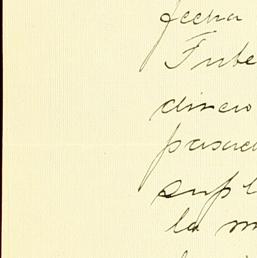 fecha
Inte
dinero
pasad
supl
la m